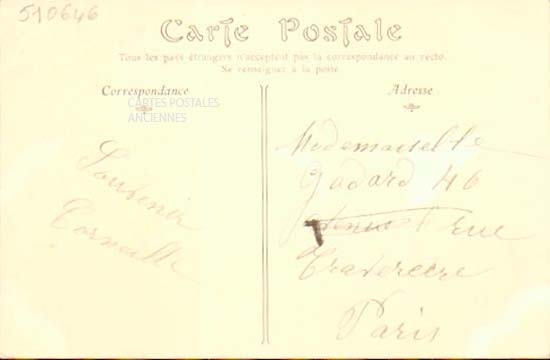 510646
Carte Postale
Tous les pays étrangers n'acceptent pas la correspondance au recto.
Se renseigner à la poste.
Correspondance
CARTES POSTALES
ANCIENNES
Souvenir
Corneille
Adresse
Mademoiselle
Godard 46
rue
Traversière
Paris